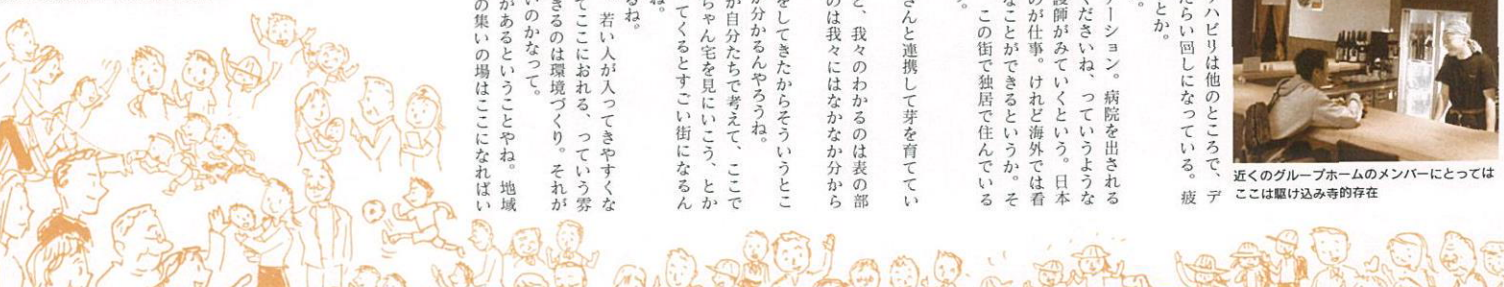 ハビリは他のところで、デ
たらい回しになっている。疲
とか。
。
テーション。病院を出される
くださいね、っていうような
護師がみていくという。日本
のが仕事。けれど海外では看
なことができるというか。そ
この街で独居で住んでいる
。
さんと連携して芽を育ててい
と、我々のわかるのは表の部
のは我々にはなかなか分から
をしてきたからそういうとこ
が分かるんやろうね。
が自分たちで考えて、ここで
ちゃん宅を見にいこう、とか
してくるとすごい街になるん
ね。
るね。
若い人が入ってきやすくな
てここにおれる、っていう雰
きるのは環境づくり。それが
いのかなって。
があるということやね。地域
の集いの場はここになればい
近くのグループホームのメンバーにとっては
ここは駆け込み寺的存在